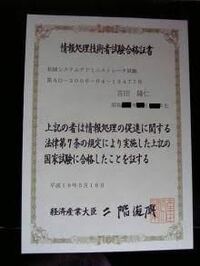 情報処理技術者試験合格証書
初級システムアドミニストレータ試験
上記の者は情報処理の促進に関する
法律第7条の規定により実施した上記の
国家試験に合格したことを証する
平成18年5月18日
経済産業大臣 二階俊博